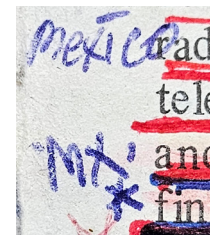 Mexico rad
tele
MX. and
* fin